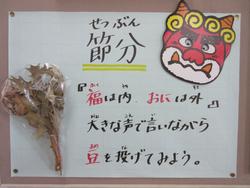 せつぶん
節分
『福は内、おには外』
大きな声で言いながら
豆を投げてみよう。